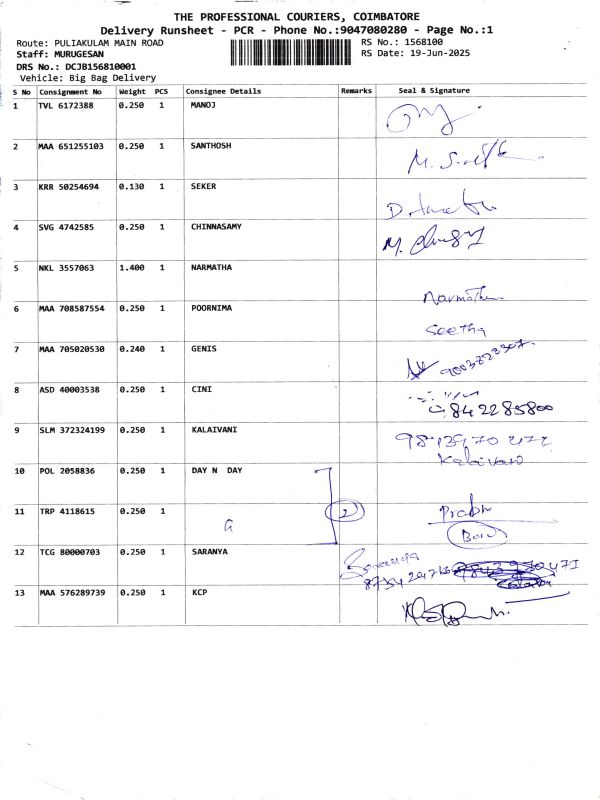 THE PROFESSIONAL COURIERS, COIMBATORE
Delivery Runsheet - PCR - Phone No.:9047080280 - Page No.:1
Route: PULIAKULAM MAIN ROAD
RS No.: 1568100
Staff: MURUGESAN
RS Date: 19-Jun-2025
DRS No.: DCJB156810001
Vehicle: Big Bag Delivery
S No Consignment No Weight PCS Consignee Details Remarks Seal & Signature
1 TVL 6172388 0.250 1 MANOJ
2 MAA 651255103 0.250 1 SANTHOSH
3 KRR 50254694 0.130 1 SEKER
4 SVG 4742585 0.250 1 CHINNASAMY
5 NKL 3557063 1.400 1 NARMATHA
Narmatha
6 MAA 708587554 0.250 1 POORNIMA
Seetha
7 MAA 705020530 0.240 1 GENIS
8 ASD 40003538 0.250 1 CINI
842285800
9 SLM 372324199 0.250 1 KALAIVANI
Kalaivani
10 POL 2058836 0.250 1 DAY N DAY
11 TRP 4118615 0.250 1
2
Prabhu
12 TCG 80000703 0.250 1 SARANYA
Saranya
13 MAA 576289739 0.250 1 KCP